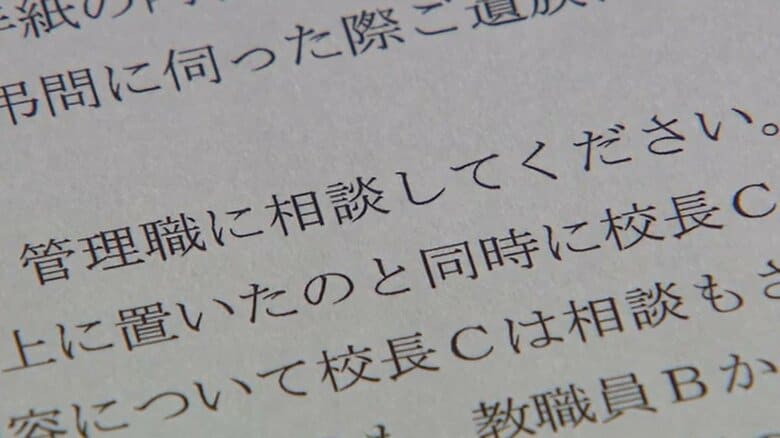 紙の
弔問に伺った際ご遺族
管理職に相談してください。
上に置いたのと同時に校長C
容について校長Cは相談もさ
教職員Bか